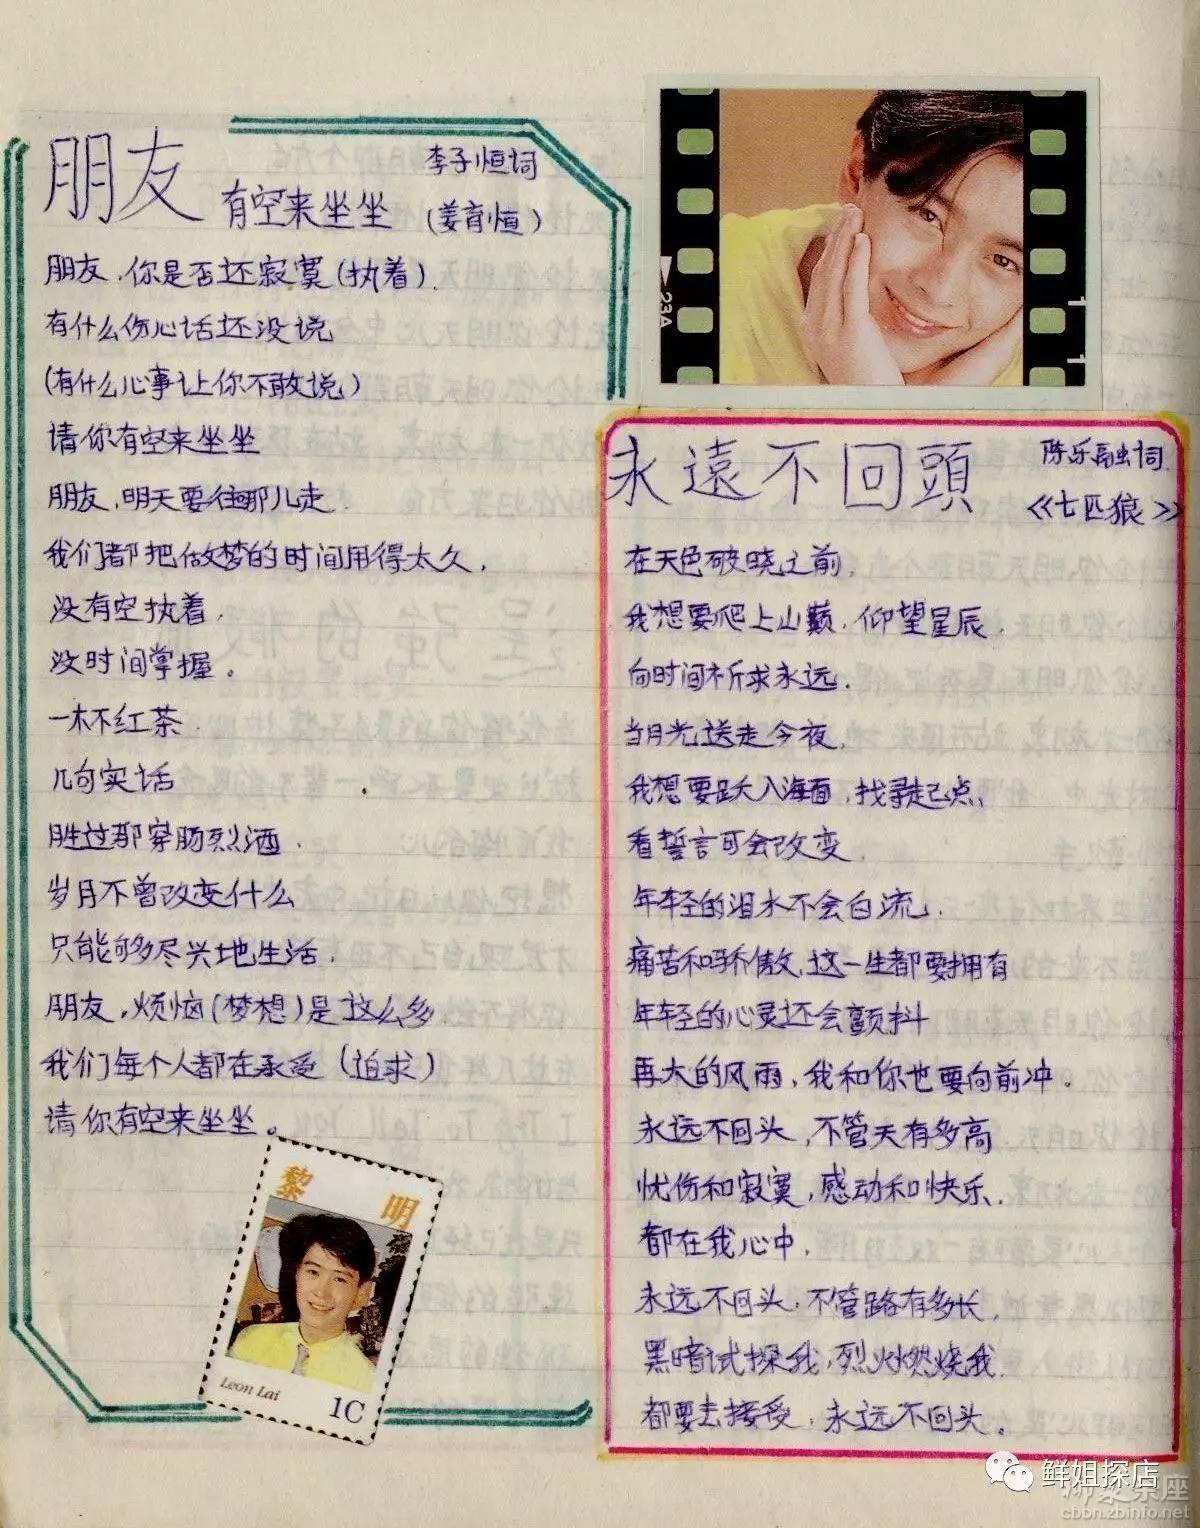 朋友
李子恒词
有空来坐坐
(姜育恒)
朋友,你是否还寂寞(执着).
有什么伤心话还没说
(有什么心事让你不敢说)
请你有空来坐坐
朋友,明天要往那儿走.
我们都把做梦的时间用得太久,
没有空执着,
没时间掌握。
一杯红茶.
几句实话
胜过那穿肠烈酒.
岁月不曾改变什么
只能够尽兴地生活.
朋友,烦恼(梦想)是这么多.
我们每个人都在承受(追求)
请你有空来坐坐。
黎明
Leon Lai
1C
23A
永遠不回頭
陈乐融词
《七匹狼》
在天色破晓之前,
我想要爬上山巅,仰望星辰.
向时间祈求永远.
当月光送走今夜,
我想要跃入海面,找寻起点,
看誓言可会改变.
年轻的泪水不会白流,
痛苦和骄傲,这一生都要拥有
年轻的心灵还会颤抖
再大的风雨,我和你也要向前冲。
永远不回头,不管天有多高
忧伤和寂寞,感动和快乐.
都在我心中,
永远不回头,不管路有多长,
黑暗试探我,烈火燃烧我.
都要去接受,永远不回头。
鲜姐探店
cbbn.zbinfo.net